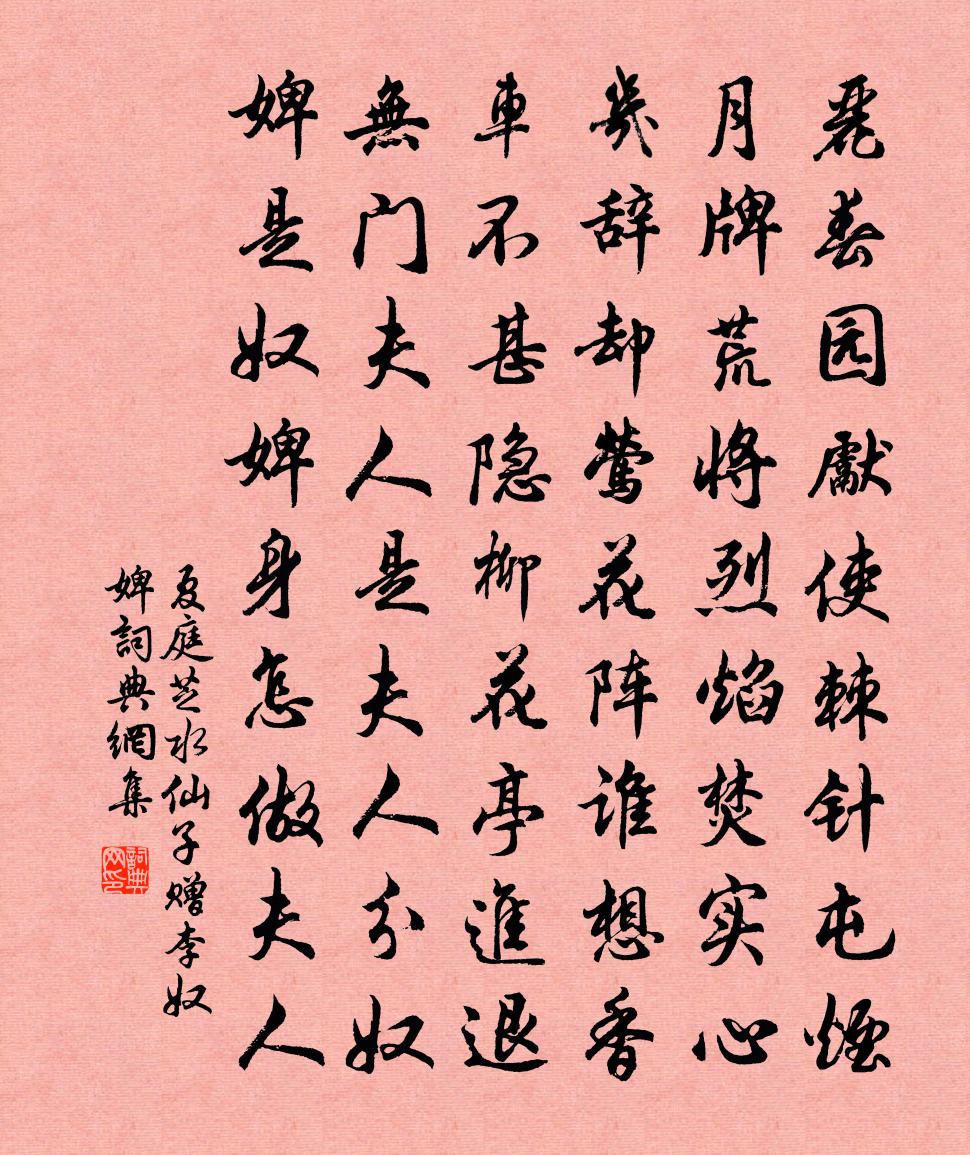 麗春园獻使棘针屯煙
月牌荒将烈焰焚实心
幾辞却莺花阵谁想香
車不甚隐柳花亭進退
無门夫人是夫人分奴
婢是奴婢身怎做夫人
夏庭芝水仙子赠李奴
婢詞典網集
詞典
网印